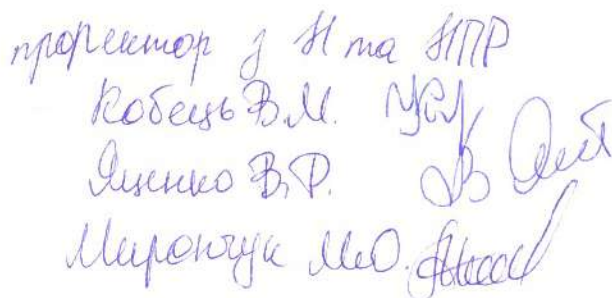 проректор з Н та НПР
Кобець В.М.
Яценко В.Р.
Мирончук М.О.